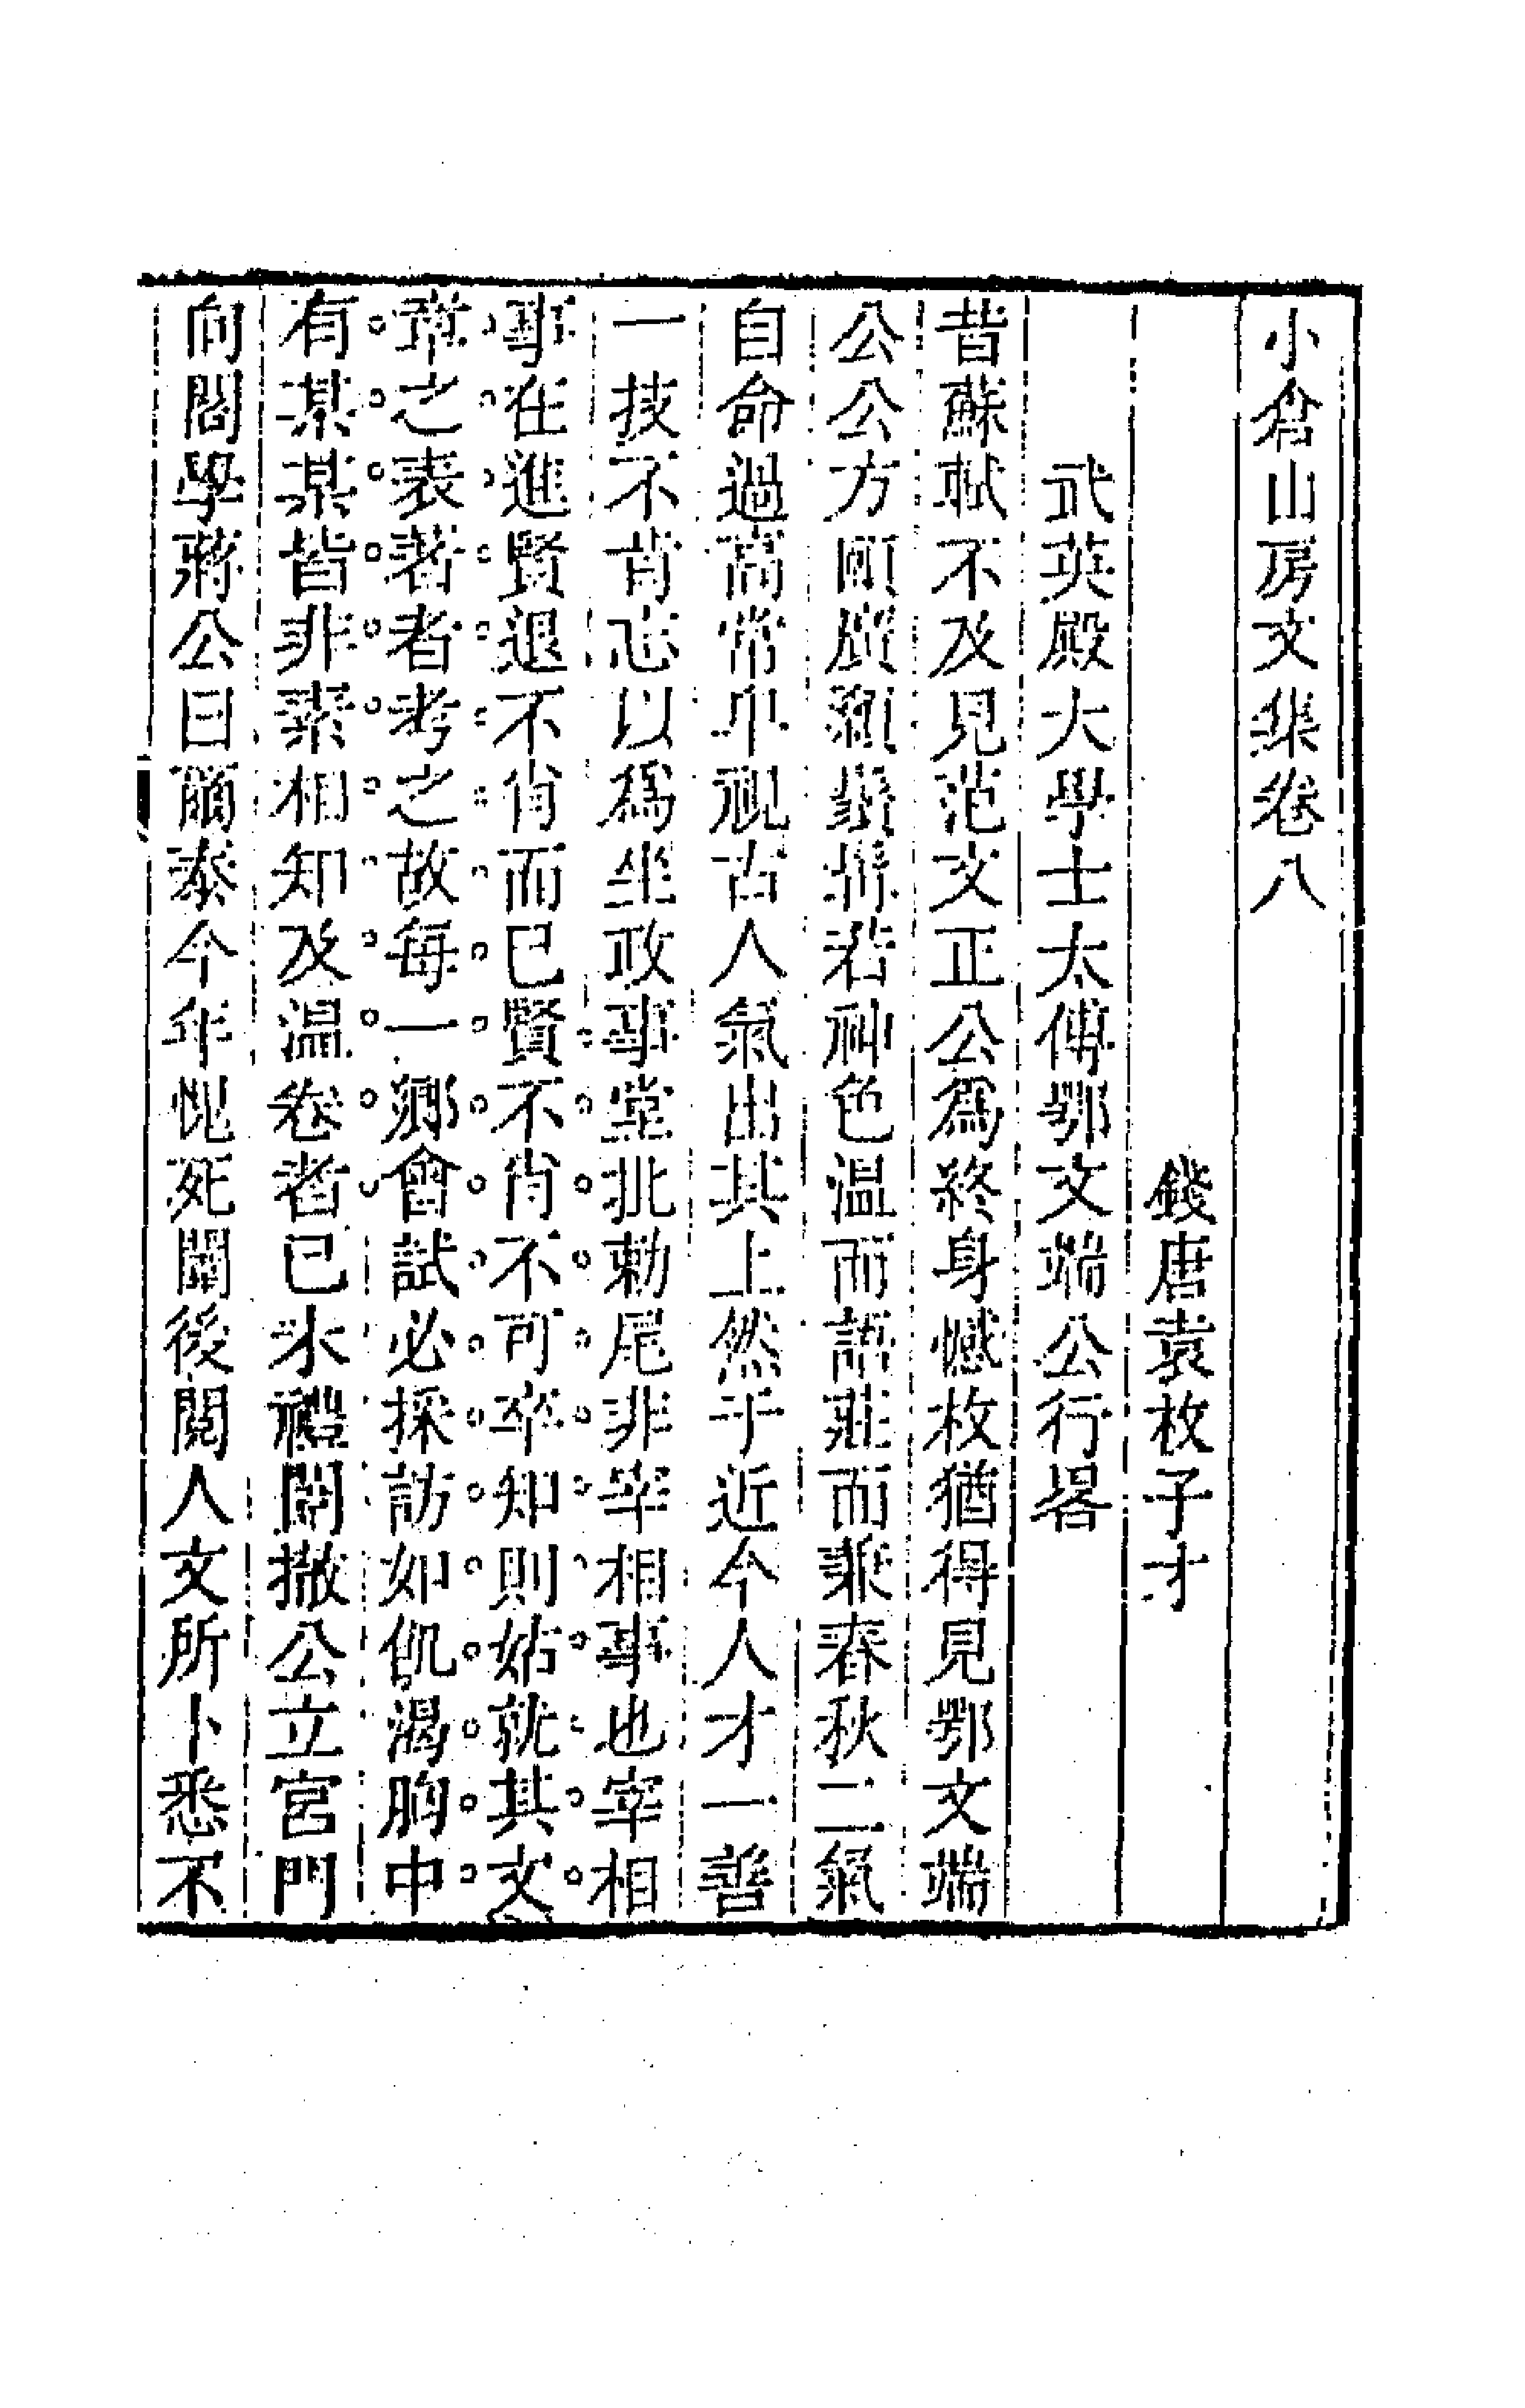 小倉山房文集卷八
錢唐袁枚子才
武英殿大學士太傅鄂文端公行畧
昔蘇軾不及見范文正公爲終身憾枚猶得見鄂文端
公公方頤廣顙鬚髯若神色温而語莊而兼春秋二氣
自命過高常卑視古人氣出其上然于近今人才一善
一技不肯忘以爲坐政事堂批勅尾非宰相事也宰相
事在進賢退不肖而已賢不肖不可卒知則姑就其文
章之表著者考之故每一鄉會試必採訪如飢渴胸中
有某某皆非素相知及温卷者已未禮闈撤公立宮門
向閣學蔣公曰爾泰今年愧死闈後閱人文所卜悉不